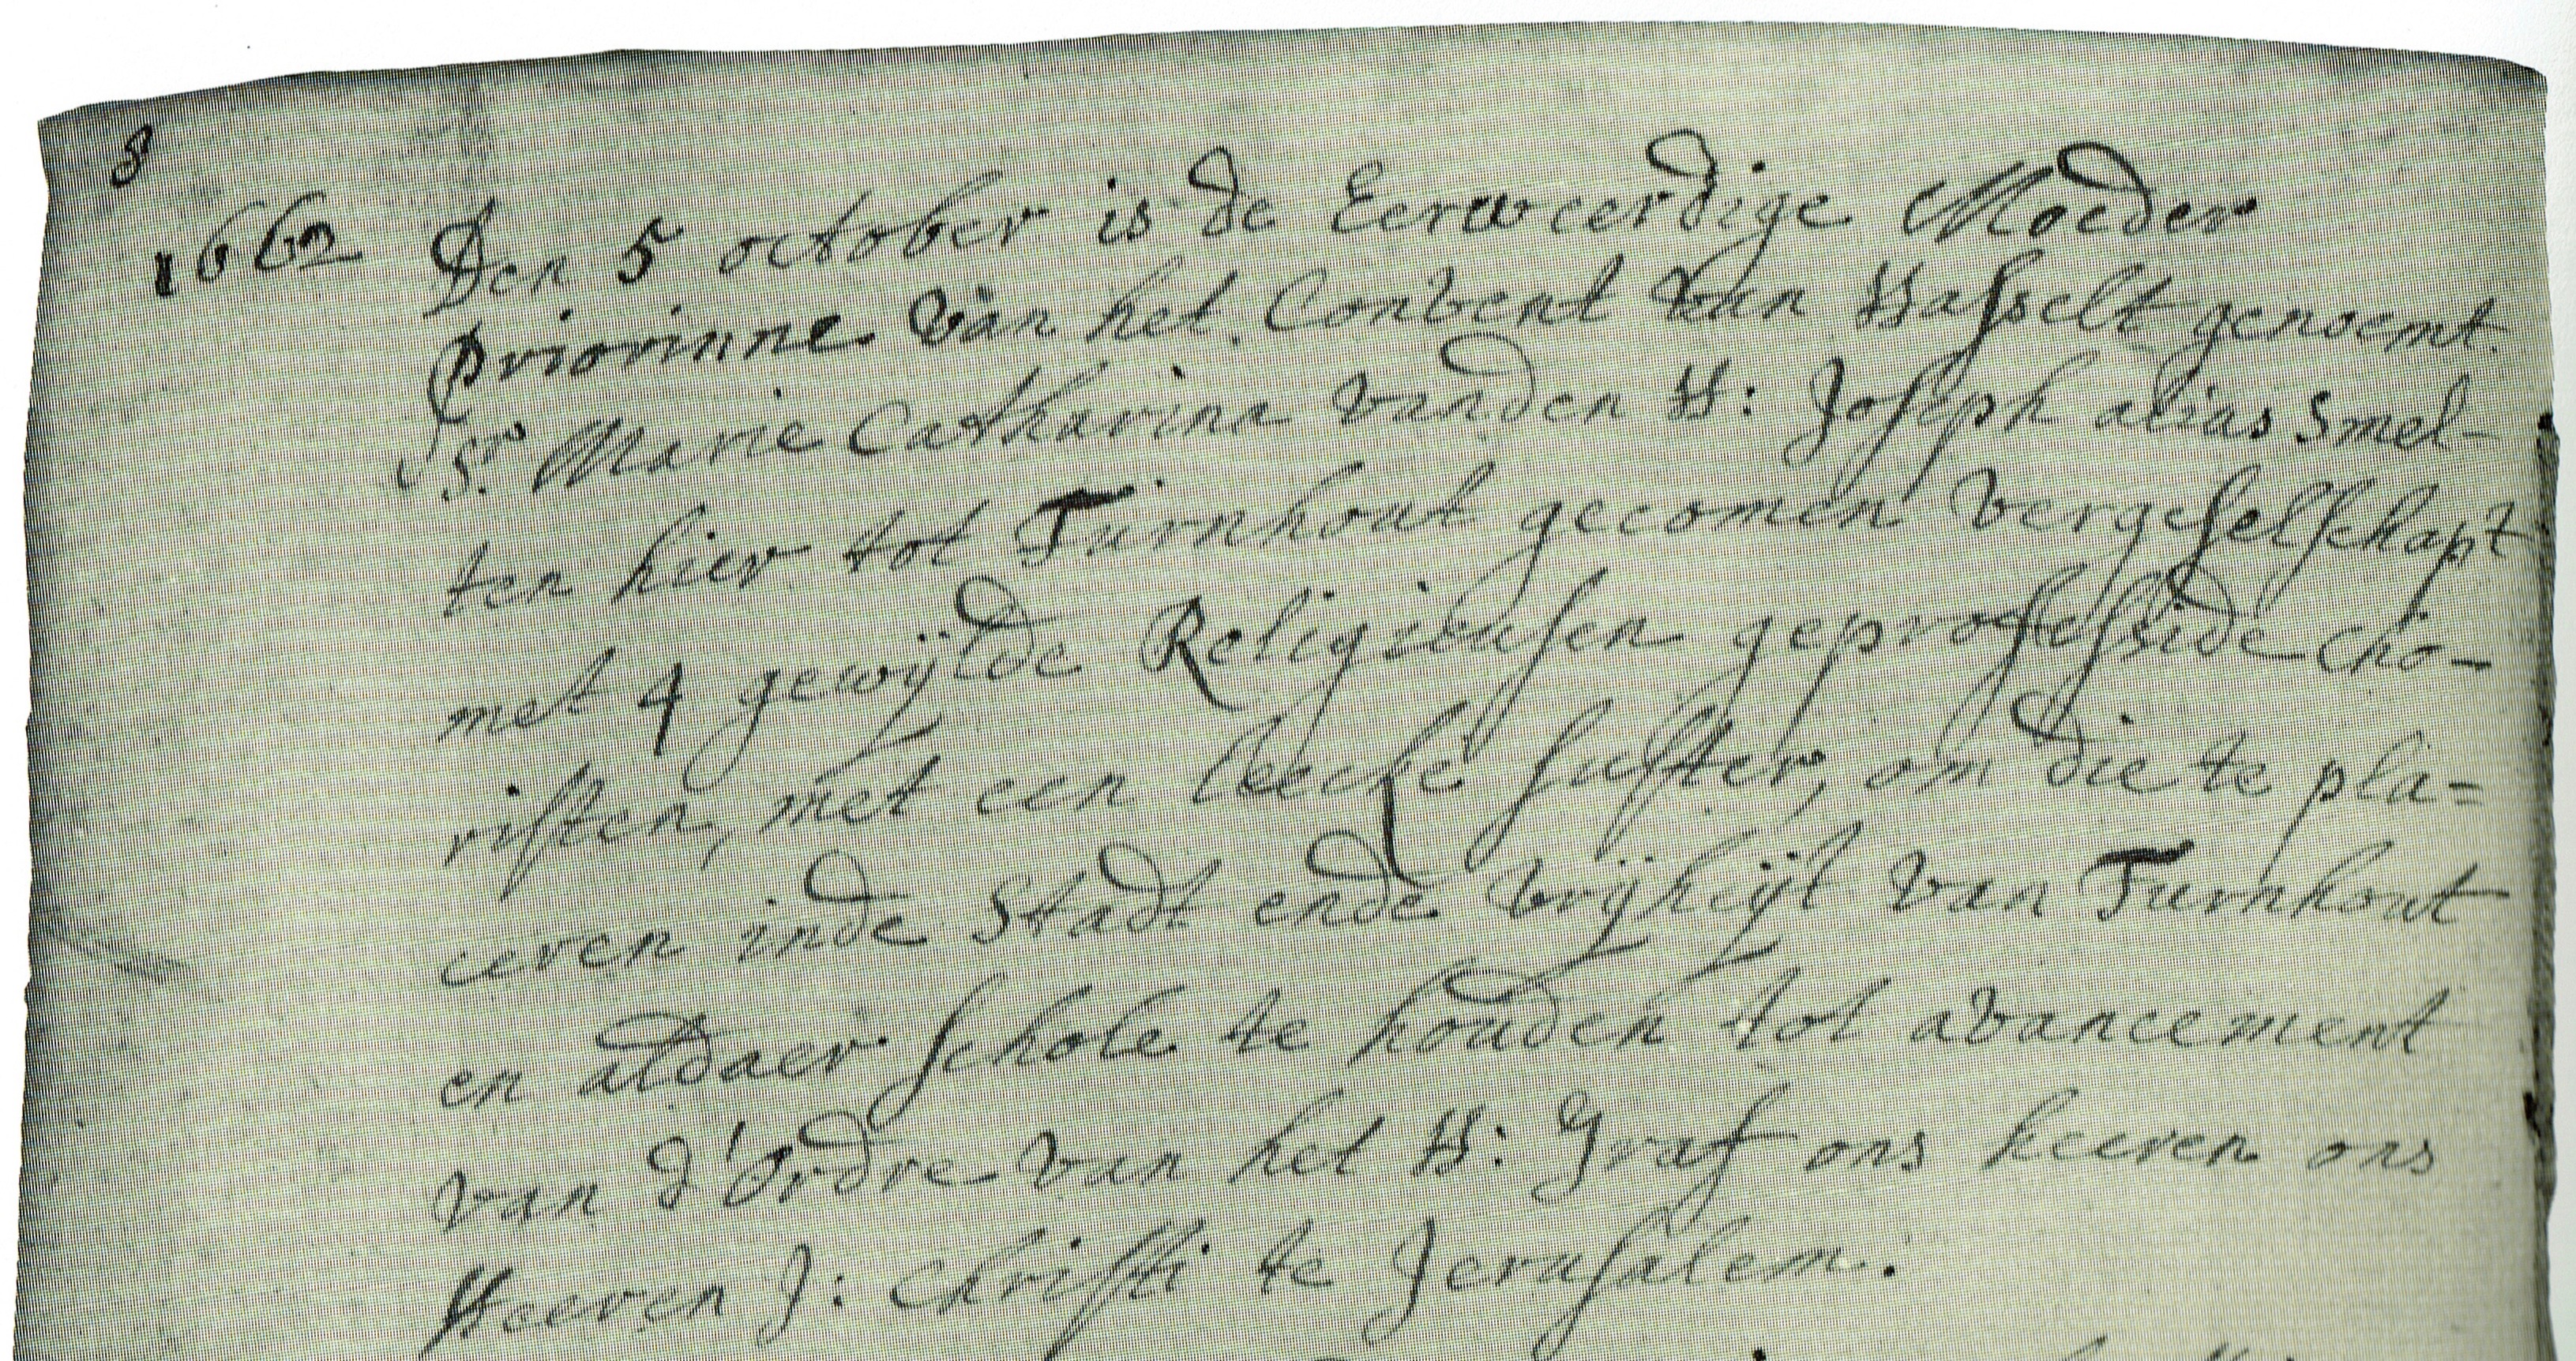 8
1662 Den 5 october is de Eerweerdige Moeder
Priorinne van het Convent van Hasselt genoemt
Sr. Marie Catharina vanden H: Joseph alias Smel-
ten hier tot Turnhout gecomen vergeselschapt
met 4 gewijlde Religieusen geprofesside cho-
risten, met een leecke suster, om die te pla=
ceren inde Stadt ende vrijheijt van Turnhout
en aldaer schole te houden tot avancement
van d'ordre van het H: Graf ons heeren ons
Heeren J: Christi te Jerusalem.